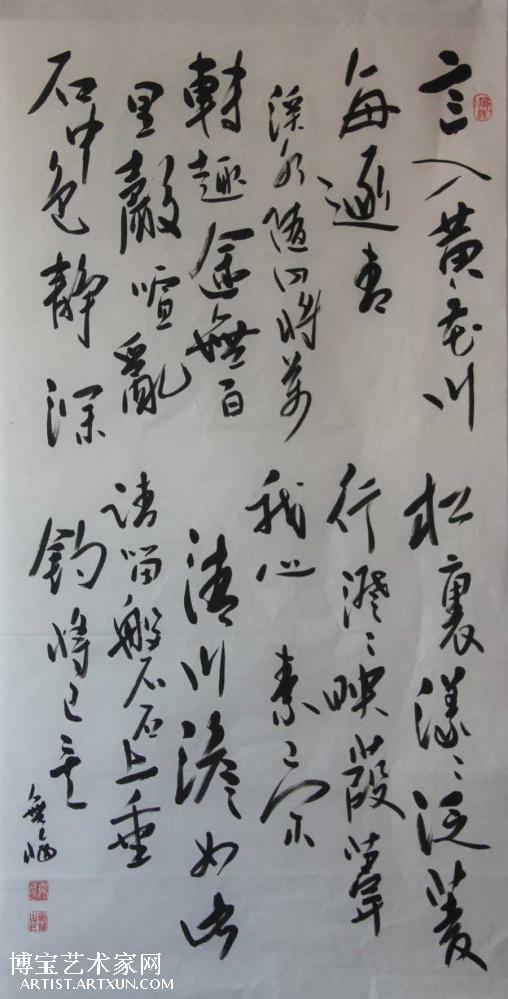 言入黄花川
每逐青
溪水随山將萬
轉趣途無百
里聲喧亂
石中色静深
松裏漾漾泛菱
荇澄澄映葭葦
我心素已閑
清川澹如此
請留磐石上垂
釣將已矣
博宝艺术家网
ARTIST.ARTXUN.COM